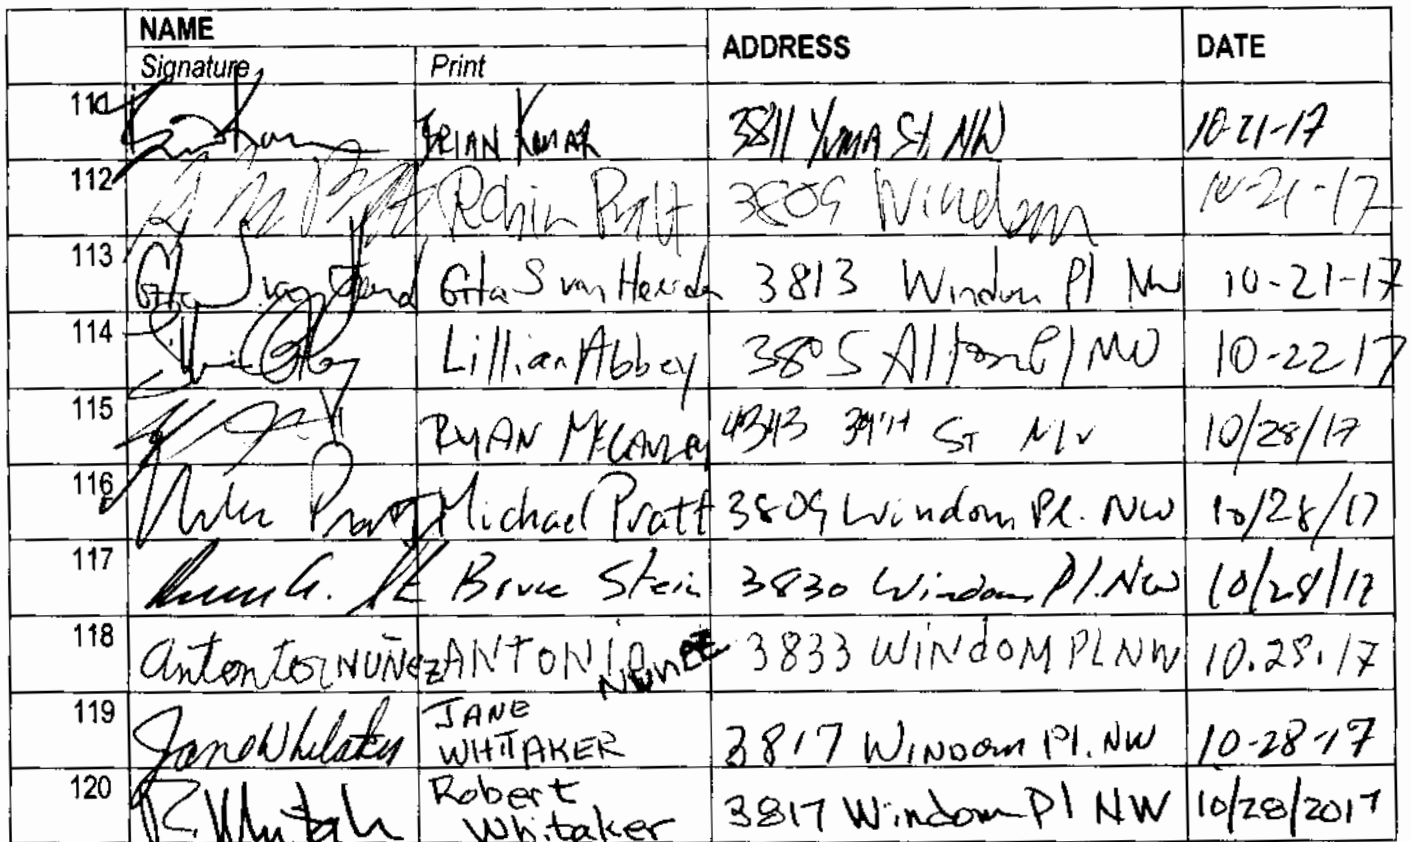 NAME ADDRESS DATE
Signature Print
111 BRIAN KUMAR 3811 YUMA ST. NW 10-21-17
112 Robin Pratt 3809 Windom 10-21-17
113 Gita S van Heerden 3813 Windom Pl NW 10-21-17
114 Lillian Abbey 3805 Alton Pl NW 10-22 17
115 RYAN 4343 39TH ST NW 10/28/17
116 Mike Pratt Michael Pratt 3809 Windom Pl. NW 10/28/17
117 Bruce Stein 3830 Windom Pl. NW 10/28/17
118 NUÑEZ ANTONIO NUNEZ 3833 WINdOM PL NW 10.28.17
119 Jane Whitaker JANE
WHITAKER 3817 WINDOM Pl. NW 10-28-17
120 R. Whitaker Robert
Whitaker 3817 Windom Pl NW 10/28/2017